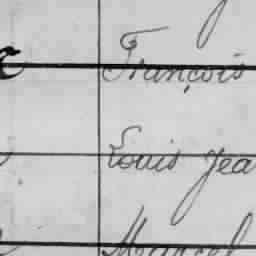 François
Louis Jea
Marcel